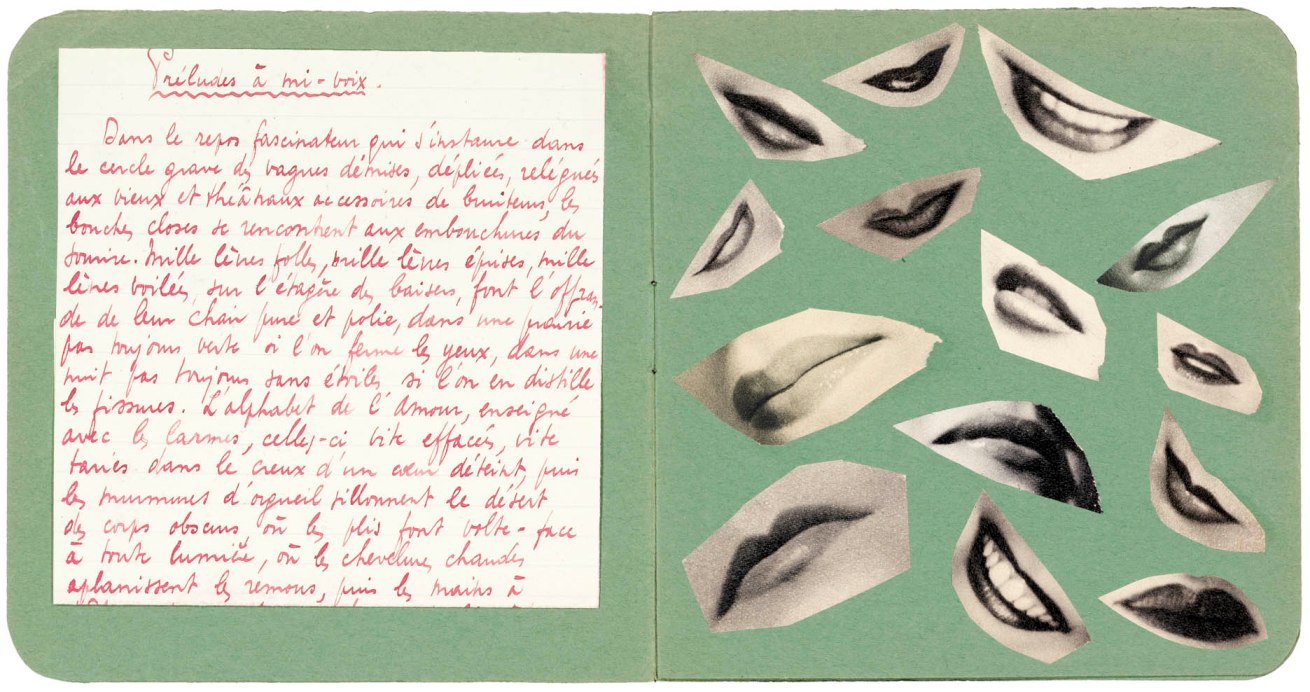 Préludes à mi-voix.
Dans le repos fascinateur qui s'instaure dans
le cercle grave des vagues démises, dépliées, relégués
aux vieux et théâtraux accessoires de bruiteurs, les
bouches closes se rencontrent aux embouchures du
sourire. Mille lèvres folles, mille lèvres éprises, mille
lèvres voilées, sur l'étagère des baisers, font l'offran-
de de leur chair pure et polie, dans une prairie
pas toujours verte si l'on ferme les yeux, dans une
nuit pas toujours sans étoiles si l'on en distille
les fissures. L'alphabet de l'Amour, enseigné
avec les larmes, celles-ci vite effacées, vite
taries dans le creux d'un cœur déteint, puis
les murmures d'orgueil sillonnent le désert
des corps obscurs, où les plis font volte-face
à toute lumière, où les chevelures chaudes
aplanissent les remous, puis les mains à